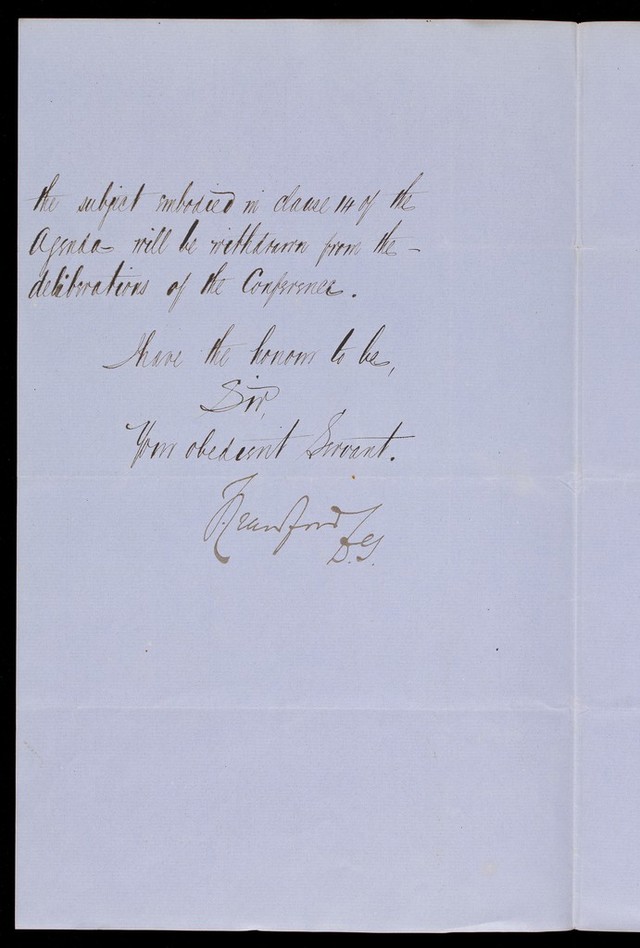 the subject embodied in clause 14 of the
Agenda will be withdrawn from the -
deliberations of the Conference.
I have the honour to be,
Sir,
Your obedient Servant.
Crawford